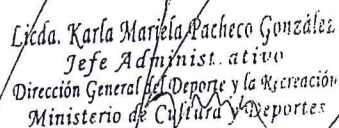 Licda. Karla Mariela Pacheco González
Jefe Administ. ativo
Dirección General del Deporte y la Recreación
Ministerio de Cultura y Deportes